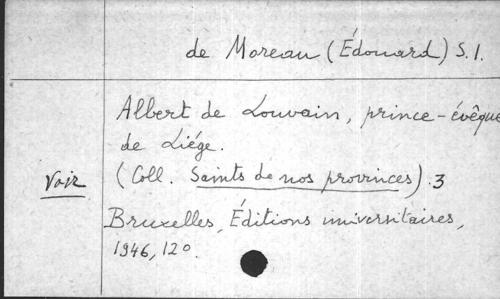 de Moreau (Édouard) S.I.
Albert de Louvain, prince-évêque
de Liége.
Voir (Coll. Saints de nos provinces). 3
Bruxelles, Éditions universitaires,
1946, 12o.